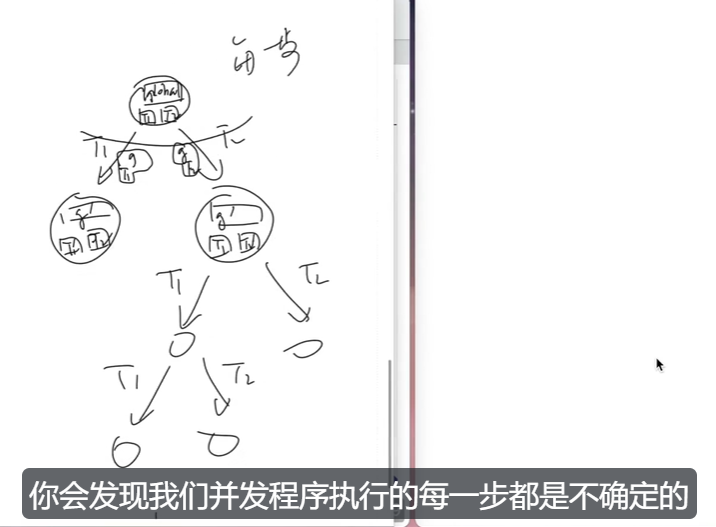 每一步
global
T1 T2
T1 T2
g g
T1 T2
g' g'
T1' T2 T1 T2'
T1 T2
T1 T2
你会发现我们并发程序执行的每一步都是不确定的